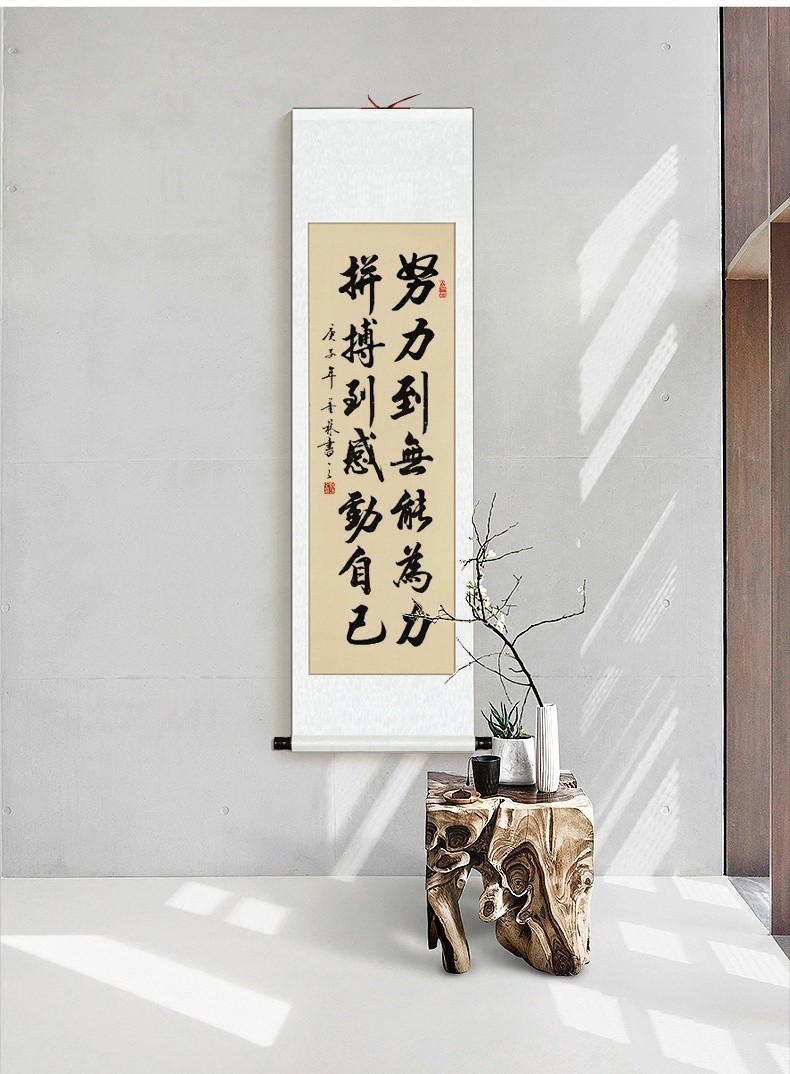 努力到無能為力
拼搏到感動自己
庚子年墨林書